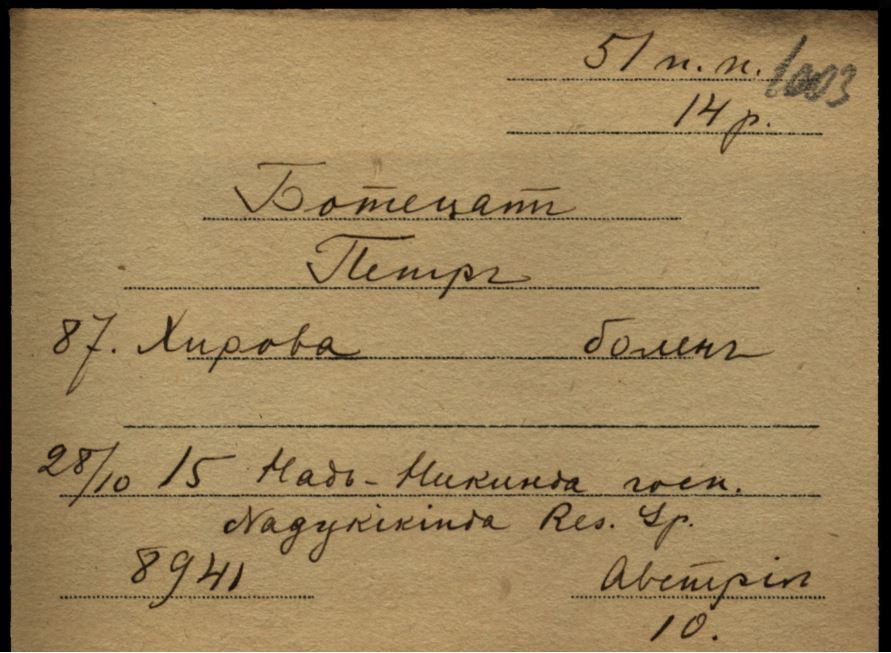 51 п. п. 1003
14 р.
Ботецатъ
Петръ
87. Хирова боленъ
28/10 15 Надь-Никинда госп.
Nagykikinda Res. Sp.
8941 Австрія
10.